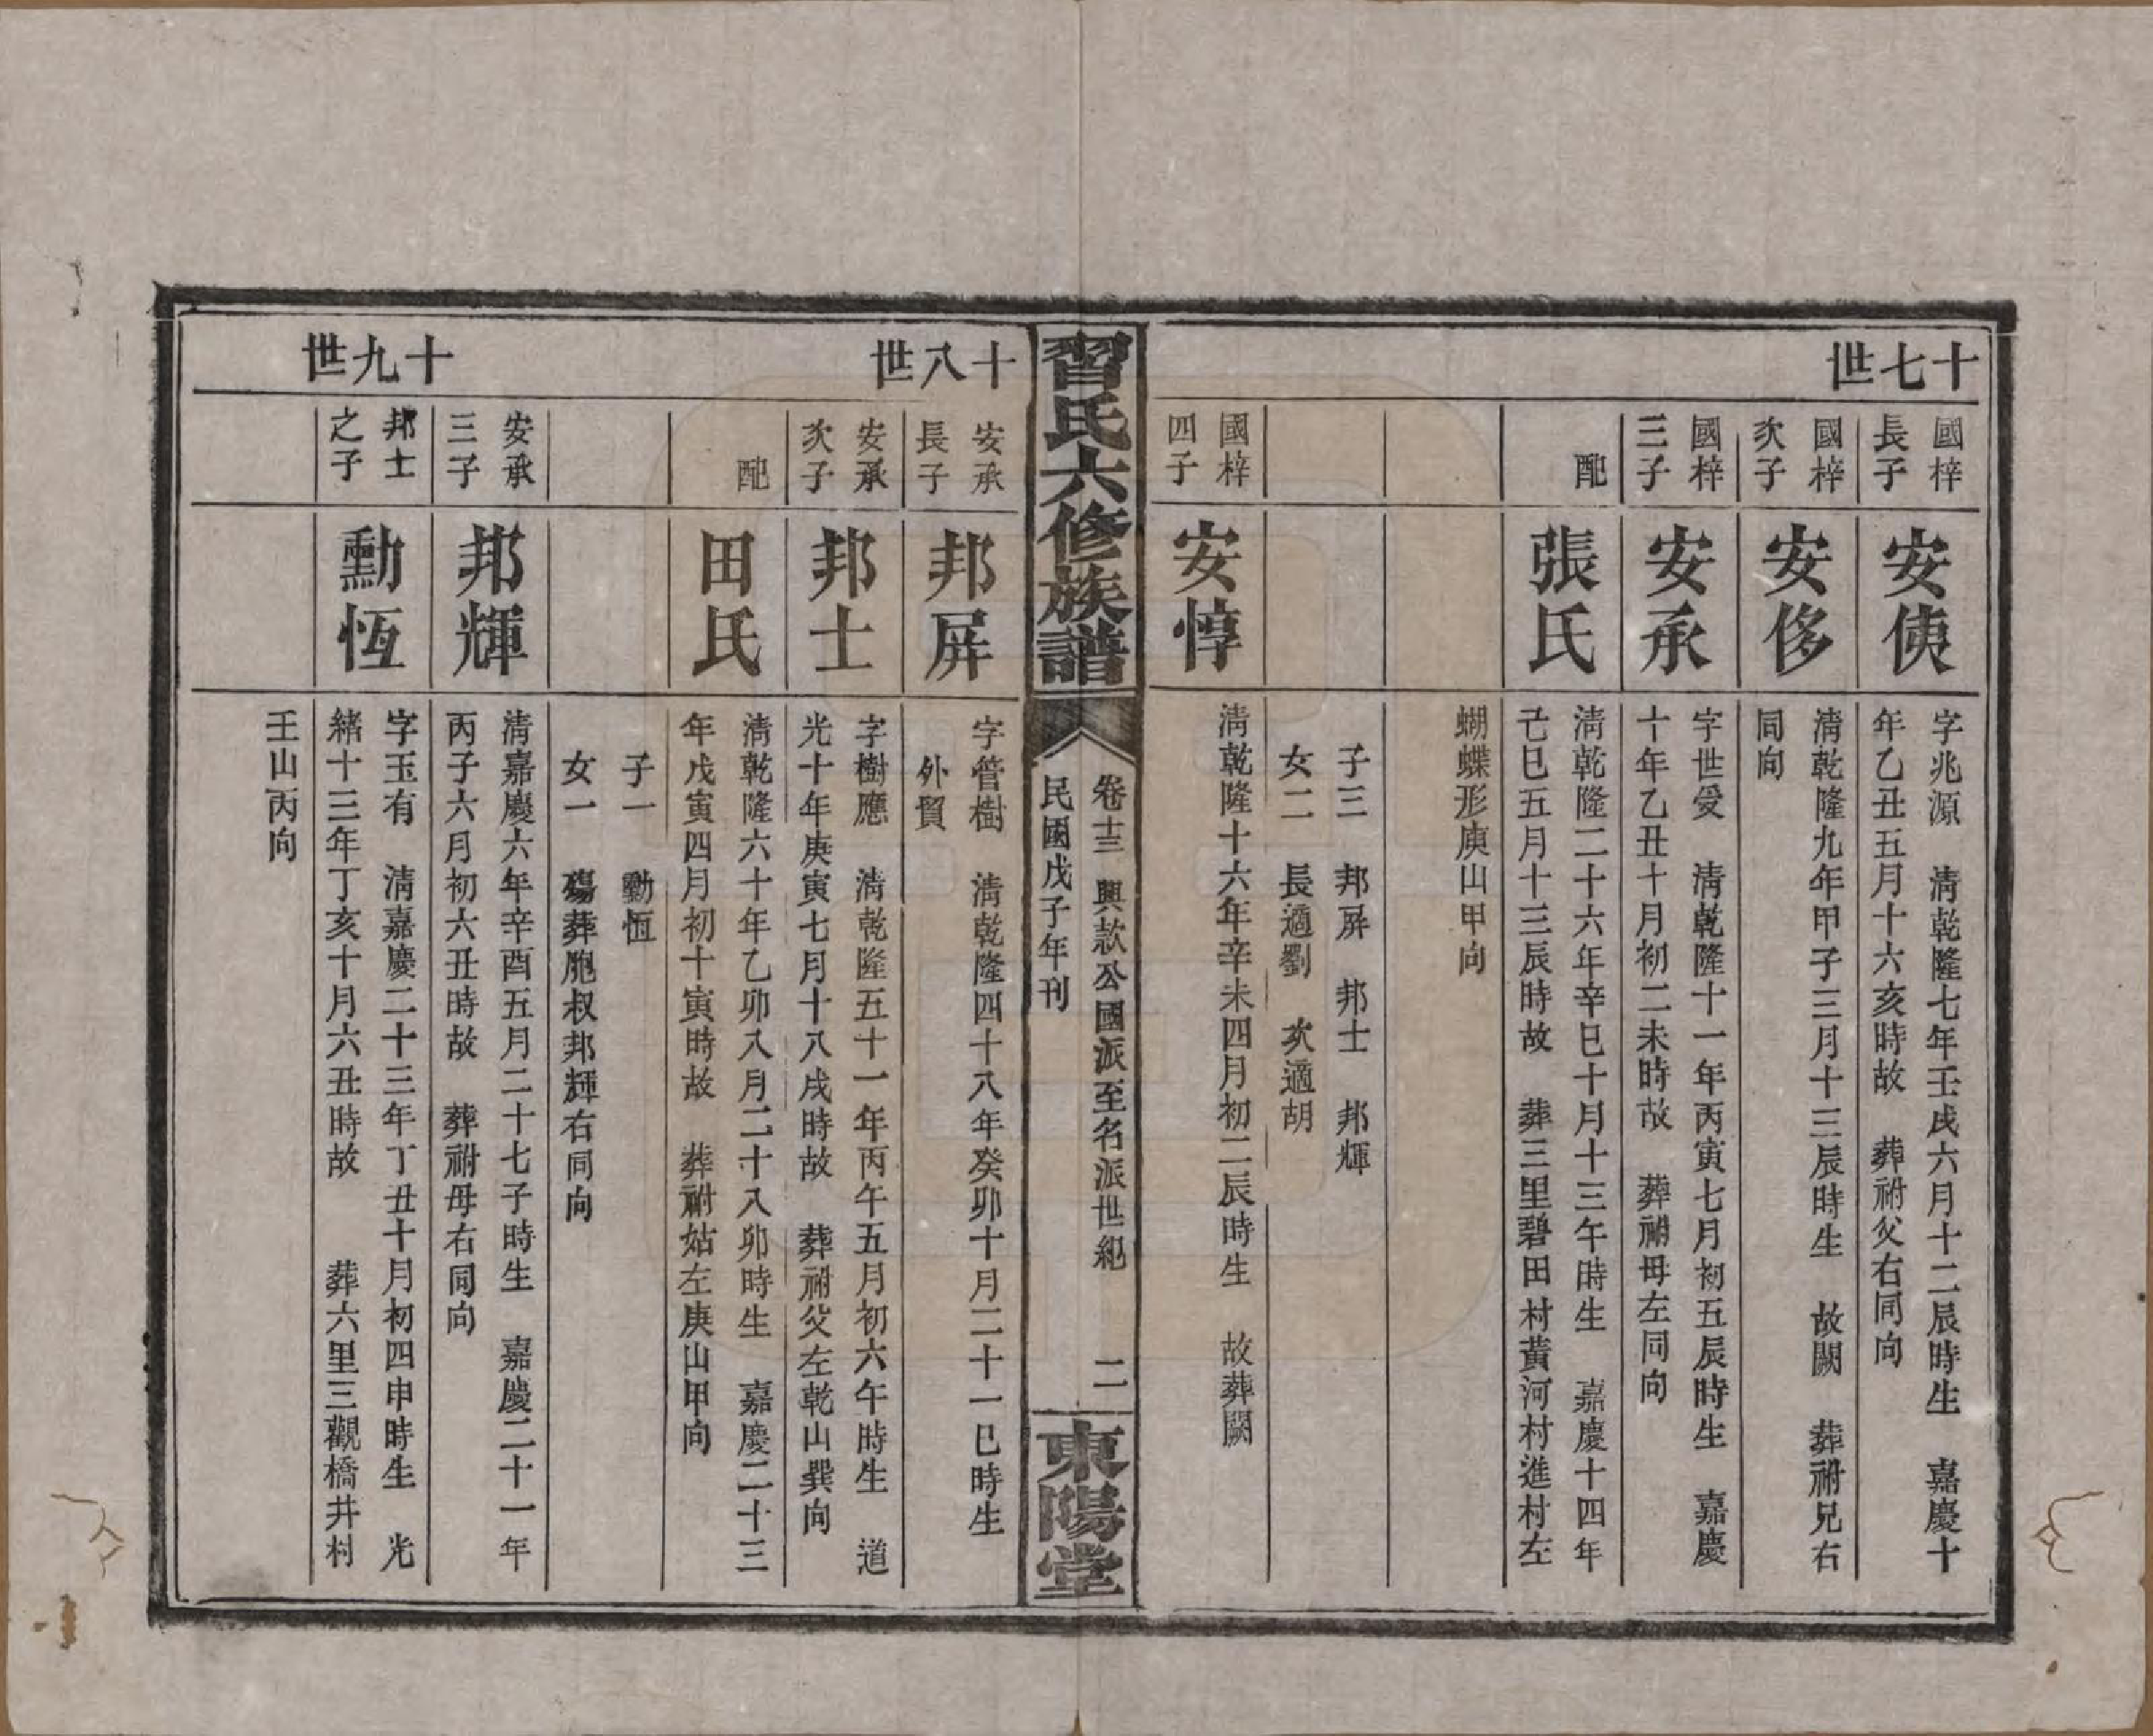 十七世
國梓
長子
安㑄
字兆源　清乾隆七年壬戌六月十二辰時生　嘉慶十
年乙丑五月十六亥時故　葬祔父右同向
國梓
次子
安侈
清乾隆九年甲子三月十三辰時生　故闕　葬祔兄右
同向
國梓
三子
安承
字世爱　清乾隆十一年丙寅七月初五辰時生　嘉慶
十年乙丑十月初二未時故　葬祔母左同向
配
張氏
清乾隆二十六年辛巳十月十三午時生　嘉慶十四年
己巳五月十三辰時故　葬三里碧田村黃河村進村左
蝴蝶形庚山甲向
子三　邦屏　邦士　邦輝
女二　長適劉　次適胡
國梓
四子
安惇
清乾隆十六年辛未四月初二辰時生　故葬闕
習氏六修族譜
卷十三　興款公國派至名派世紀　二
民國戊子年刊
東陽堂
十八世
安承
長子
邦屏
字管樹　清乾隆四十八年癸卯十月二十一巳時生
外貿
安承
次子
邦士
字樹應　清乾隆五十一年丙午五月初六午時生　道
光十年庚寅七月十八戌時故　葬祔父左乾山巽向
配
田氏
清乾隆六十年乙卯八月二十八卯時生　嘉慶二十三
年戊寅四月初十寅時故　葬祔姑左庚山甲向
子一　勳恆
女一　殤葬胞叔邦輝右同向
安承
三子
邦輝
清嘉慶六年辛酉五月二十七子時生　嘉慶二十一年
丙子六月初六丑時故　葬祔母右同向
十九世
邦士
之子
勳恆
字玉有　清嘉慶二十三年丁丑十月初四申時生　光
緒十三年丁亥十月六丑時故　葬六里三觀橋井村
壬山丙向